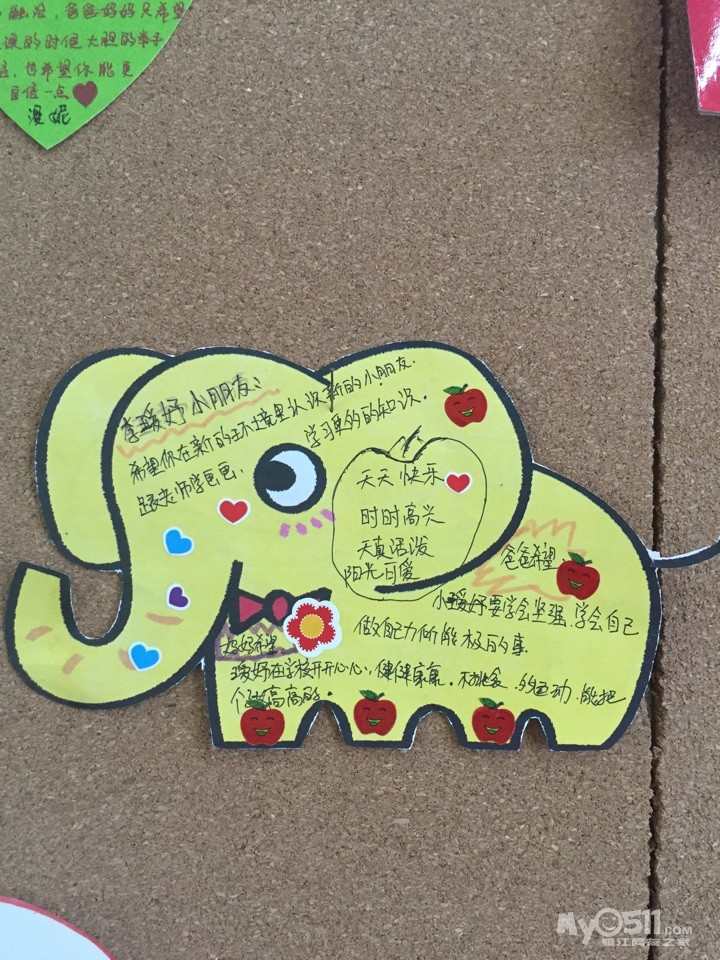 融洽，爸爸妈妈只希望
课的时候大胆的举手
言，也希望你能更
自信一点
漫妮
李瑷妤小朋友：
希望你在新的环境里认识新的小朋友.
跟老师学画画， 学习更多的知识.
天天快乐
时时高兴
天真活泼
阳光可爱
爸爸希望
小瑷妤要学会坚强.学会自己
做自己力所能极的事.
妈妈希望
瑷妤在学校开开心心，健健康康.不挑食.多运动.能把
个子长高高的.
My0511.com
镇江网友之家